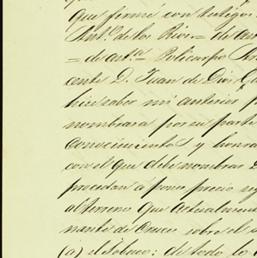 que firmé con testigos
Ant.º de los Rios = de
= de asta. Policarpo
cente D. Juan de Dios
hice saber mi anterior
nombrara por su parte
conocimientos y honra
con el que debe nombrar D
procedan a poner precio
al terreno que actualmen
nante de Cruces sobre el
(a) el Tobaco: de todo lo